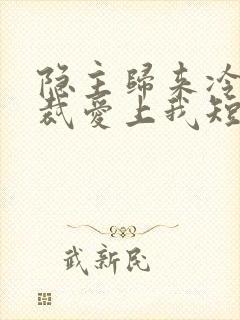 隐主歸来冷
裁愛上我短
武新民